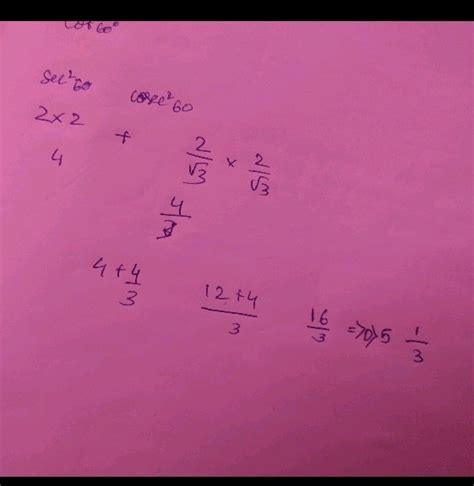 cos 60°
sec²60 cosec²60
2×2 + 2/√3 × 2/√3
4
4/3
4+4/3 12+4/3 16/3 => 5 1/3